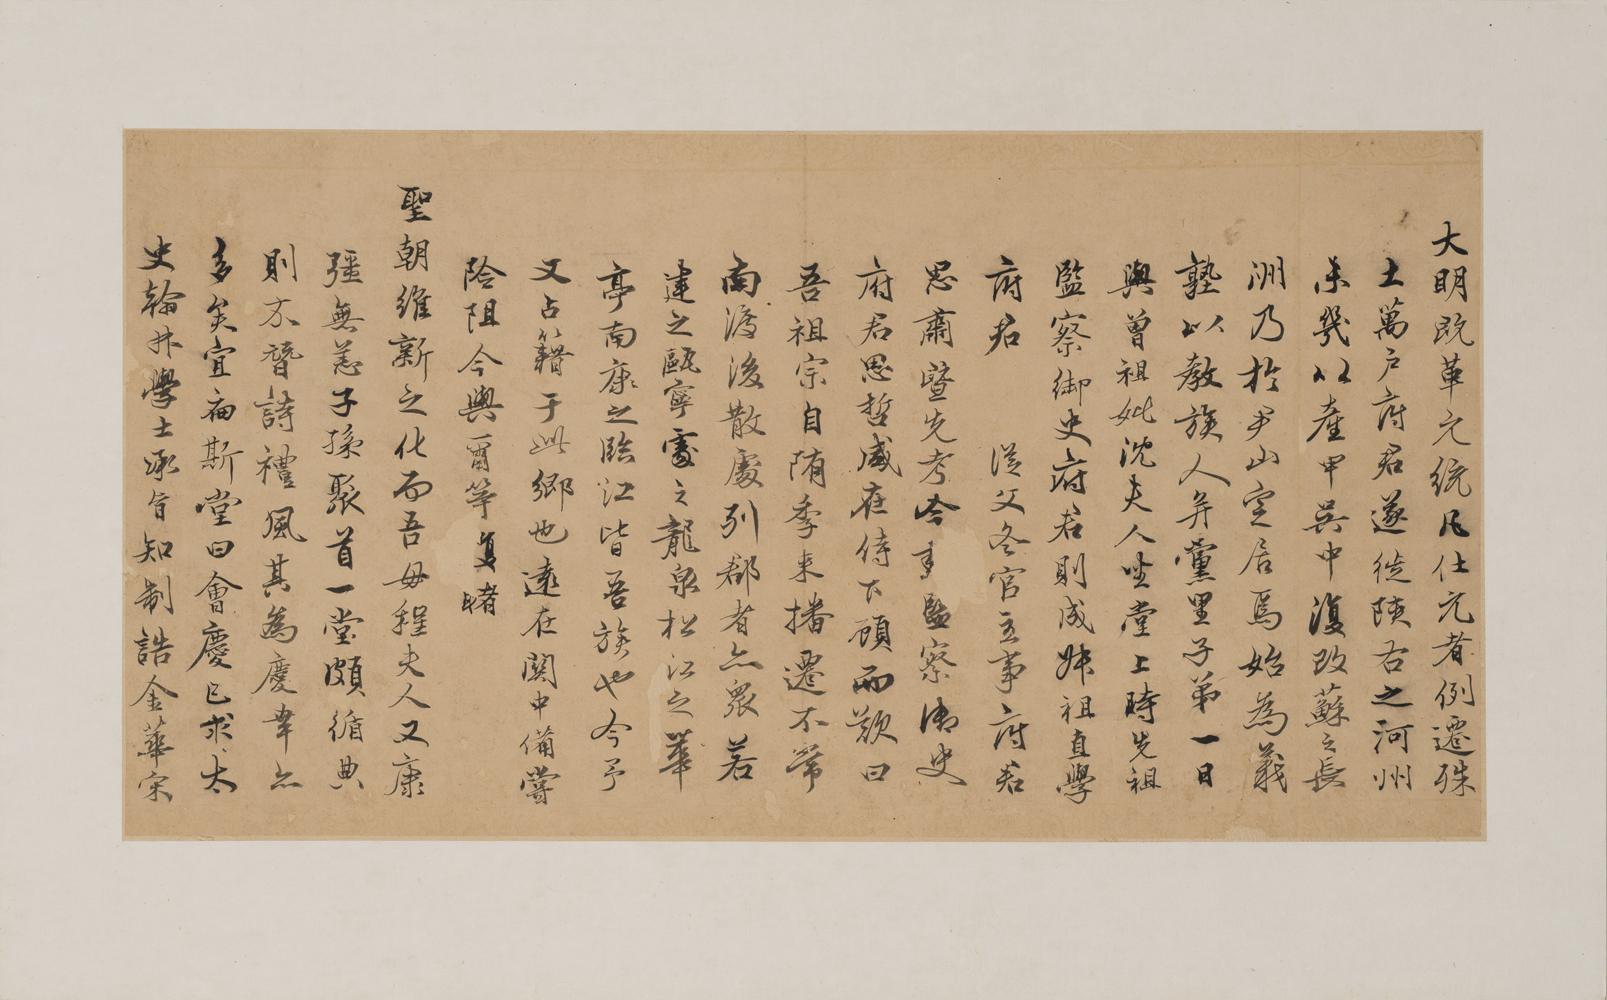 大明既革元統凡仕元者例遷殊
土萬戶府君遂徙陝右之河州
未幾以產甲吳中復改蘇之長
洲乃於尹山定居焉始為義
塾以教族人并黨里子弟一日
與曾祖妣沈夫人坐堂上時先祖
監察御史府君則成姊祖直學
府君 從父冬官主事府君
思肅暨先考今贈監察御史
府君思哲咸在侍下顧而歎曰
吾祖宗自隋季來播遷不常
南渡後散處列郡者亦衆若
建之甌寧處之龍泉松江之華
亭南康之臨江皆吾族也今予
又占籍于此鄉也遠在關中備嘗
險阻今與爾等復睹
聖朝維新之化而吾母程夫人又康
彊無恙子孫聚首一堂頗循典
則亦簪詩禮風其為慶幸亦
多矣宜扁斯堂曰會慶已求太
史翰林學士承旨知制誥金華宋